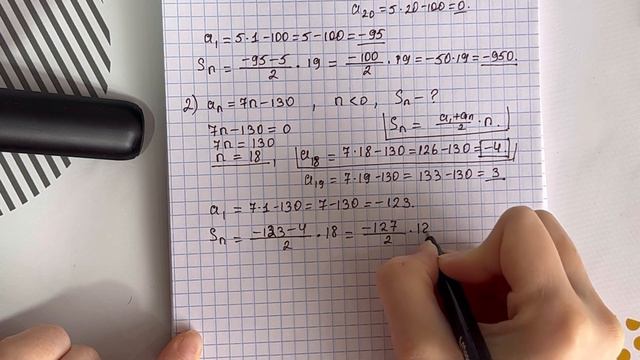 a₂₀ = 5·20-100 = 0.
a₁ = 5·1-100 = 5-100 = -95
Sₙ = (-95-5)/2 · 19 = -100/2 · 19 = -50·19 = -950.
2) aₙ = 7n-130 , n<0, Sₙ - ?
7n-130 = 0
Sₙ = (a₁+aₙ)/2 · n.
7n = 130
n = 18,
a₁₈ = 7·18-130 = 126-130 = -4.
a₁₉ = 7·19-130 = 133-130 = 3.
a₁ = 7·1-130 = 7-130 = -123.
Sₙ = (-123-4)/2 · 18 = -127/2 · 18